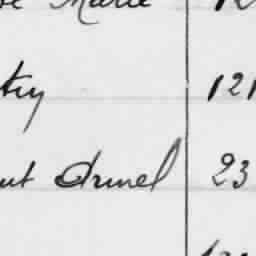 Marie 12
try 121
ut Armel 23